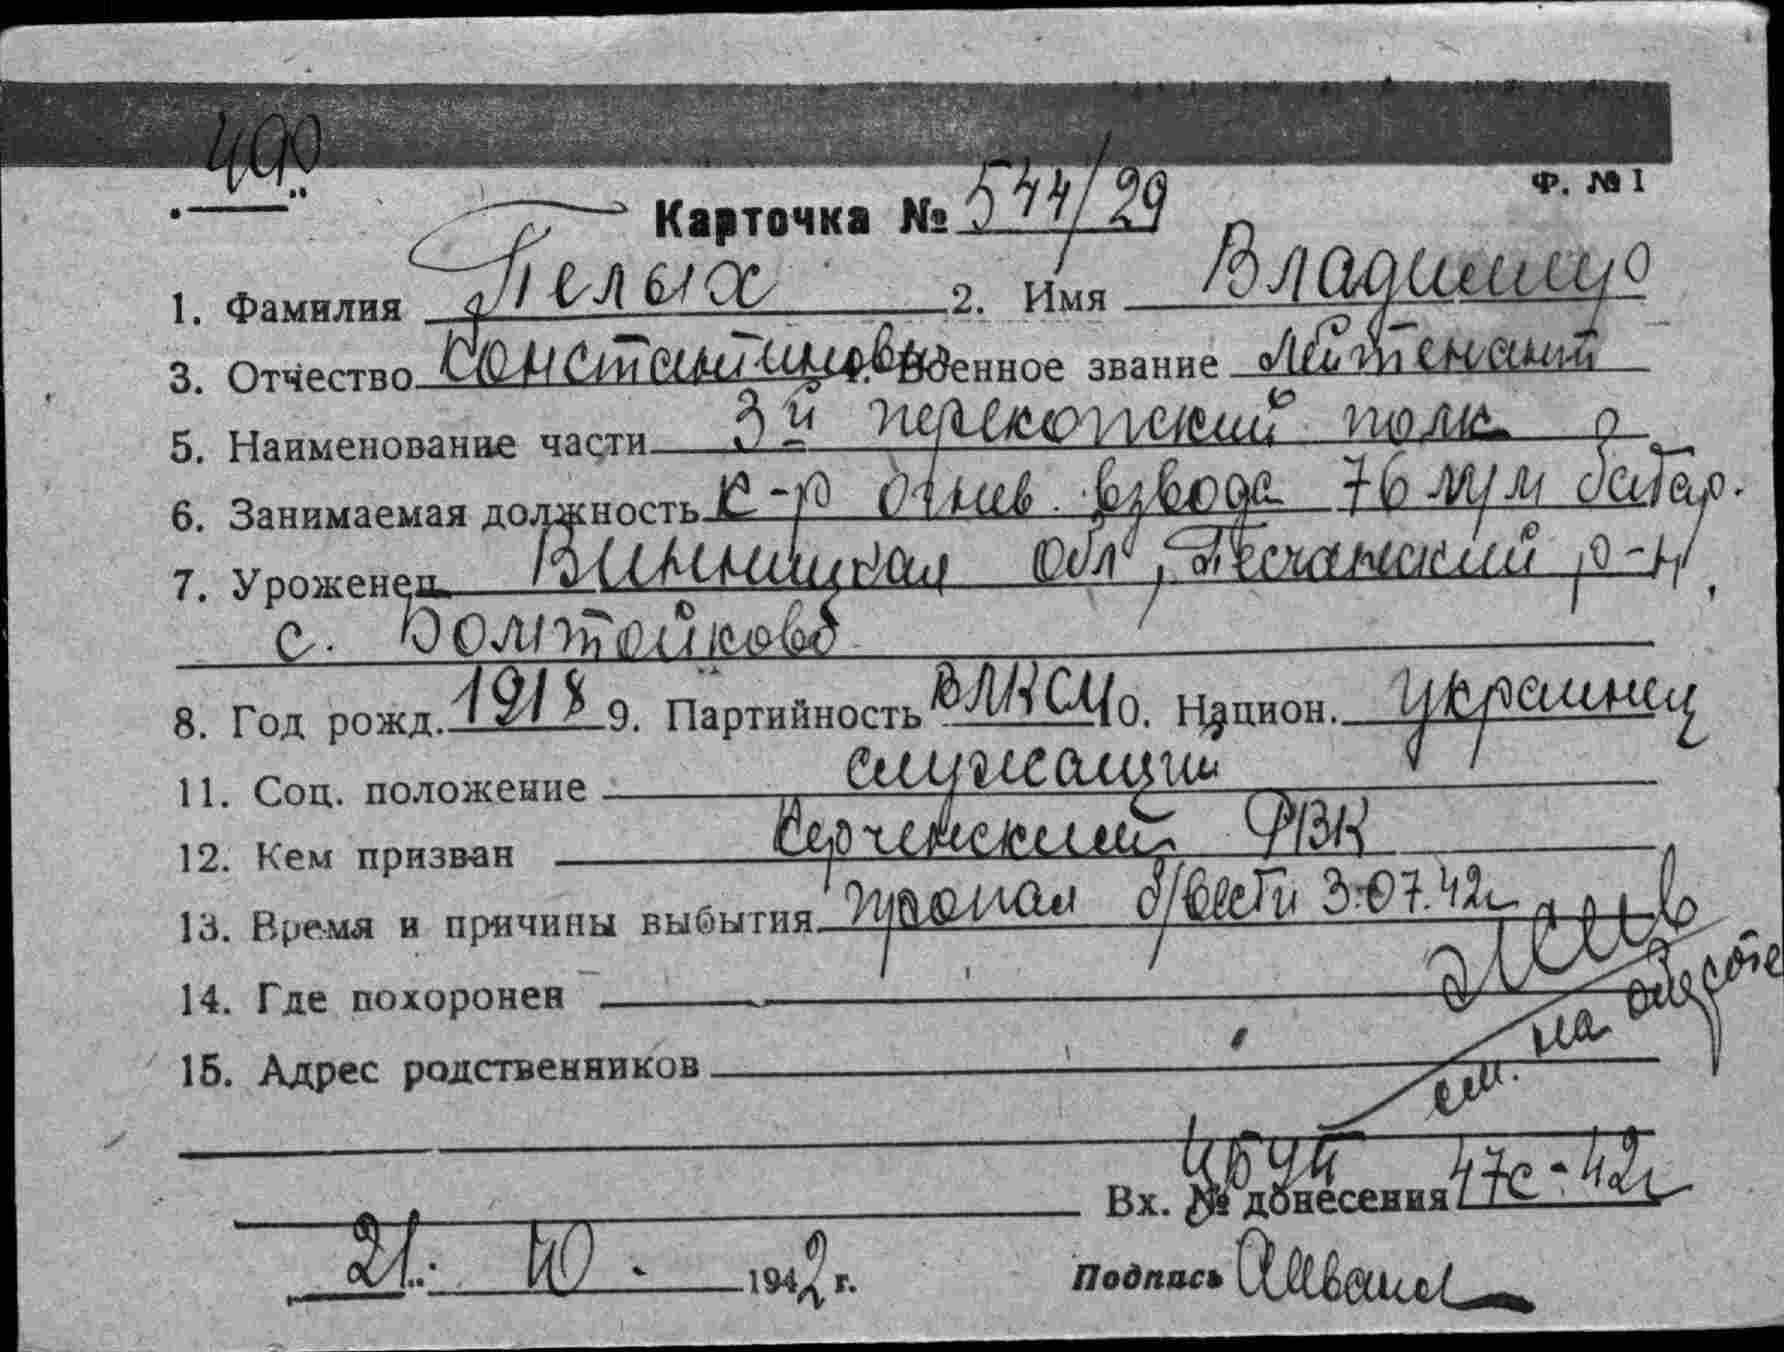 490
Ф. № 1
Карточка № 544/29
1. Фамилия Пелых 2. Имя Владимир
3. Отчество Константинович 4. Военное звание Лейтенант
5. Наименование части 3й перекопский полк
6. Занимаемая должность к-р огнев. взвода 76 м/м батар.
7. Уроженец Винницкая обл, Песчанский р-н,
с. Болтайково
8. Год рожд. 1918 9. Партийность ВЛКСМ 10. Национ. украинец
11. Соц. положение служащий
12. Кем призван Керченский РВК
13. Время и причины выбытия пропал б/вести 3.07.42г
жив
14. Где похоронен
см. на обороте
15. Адрес родственников
Вх. № донесения 47с-42г
21. 10. 1942 г. Подпись